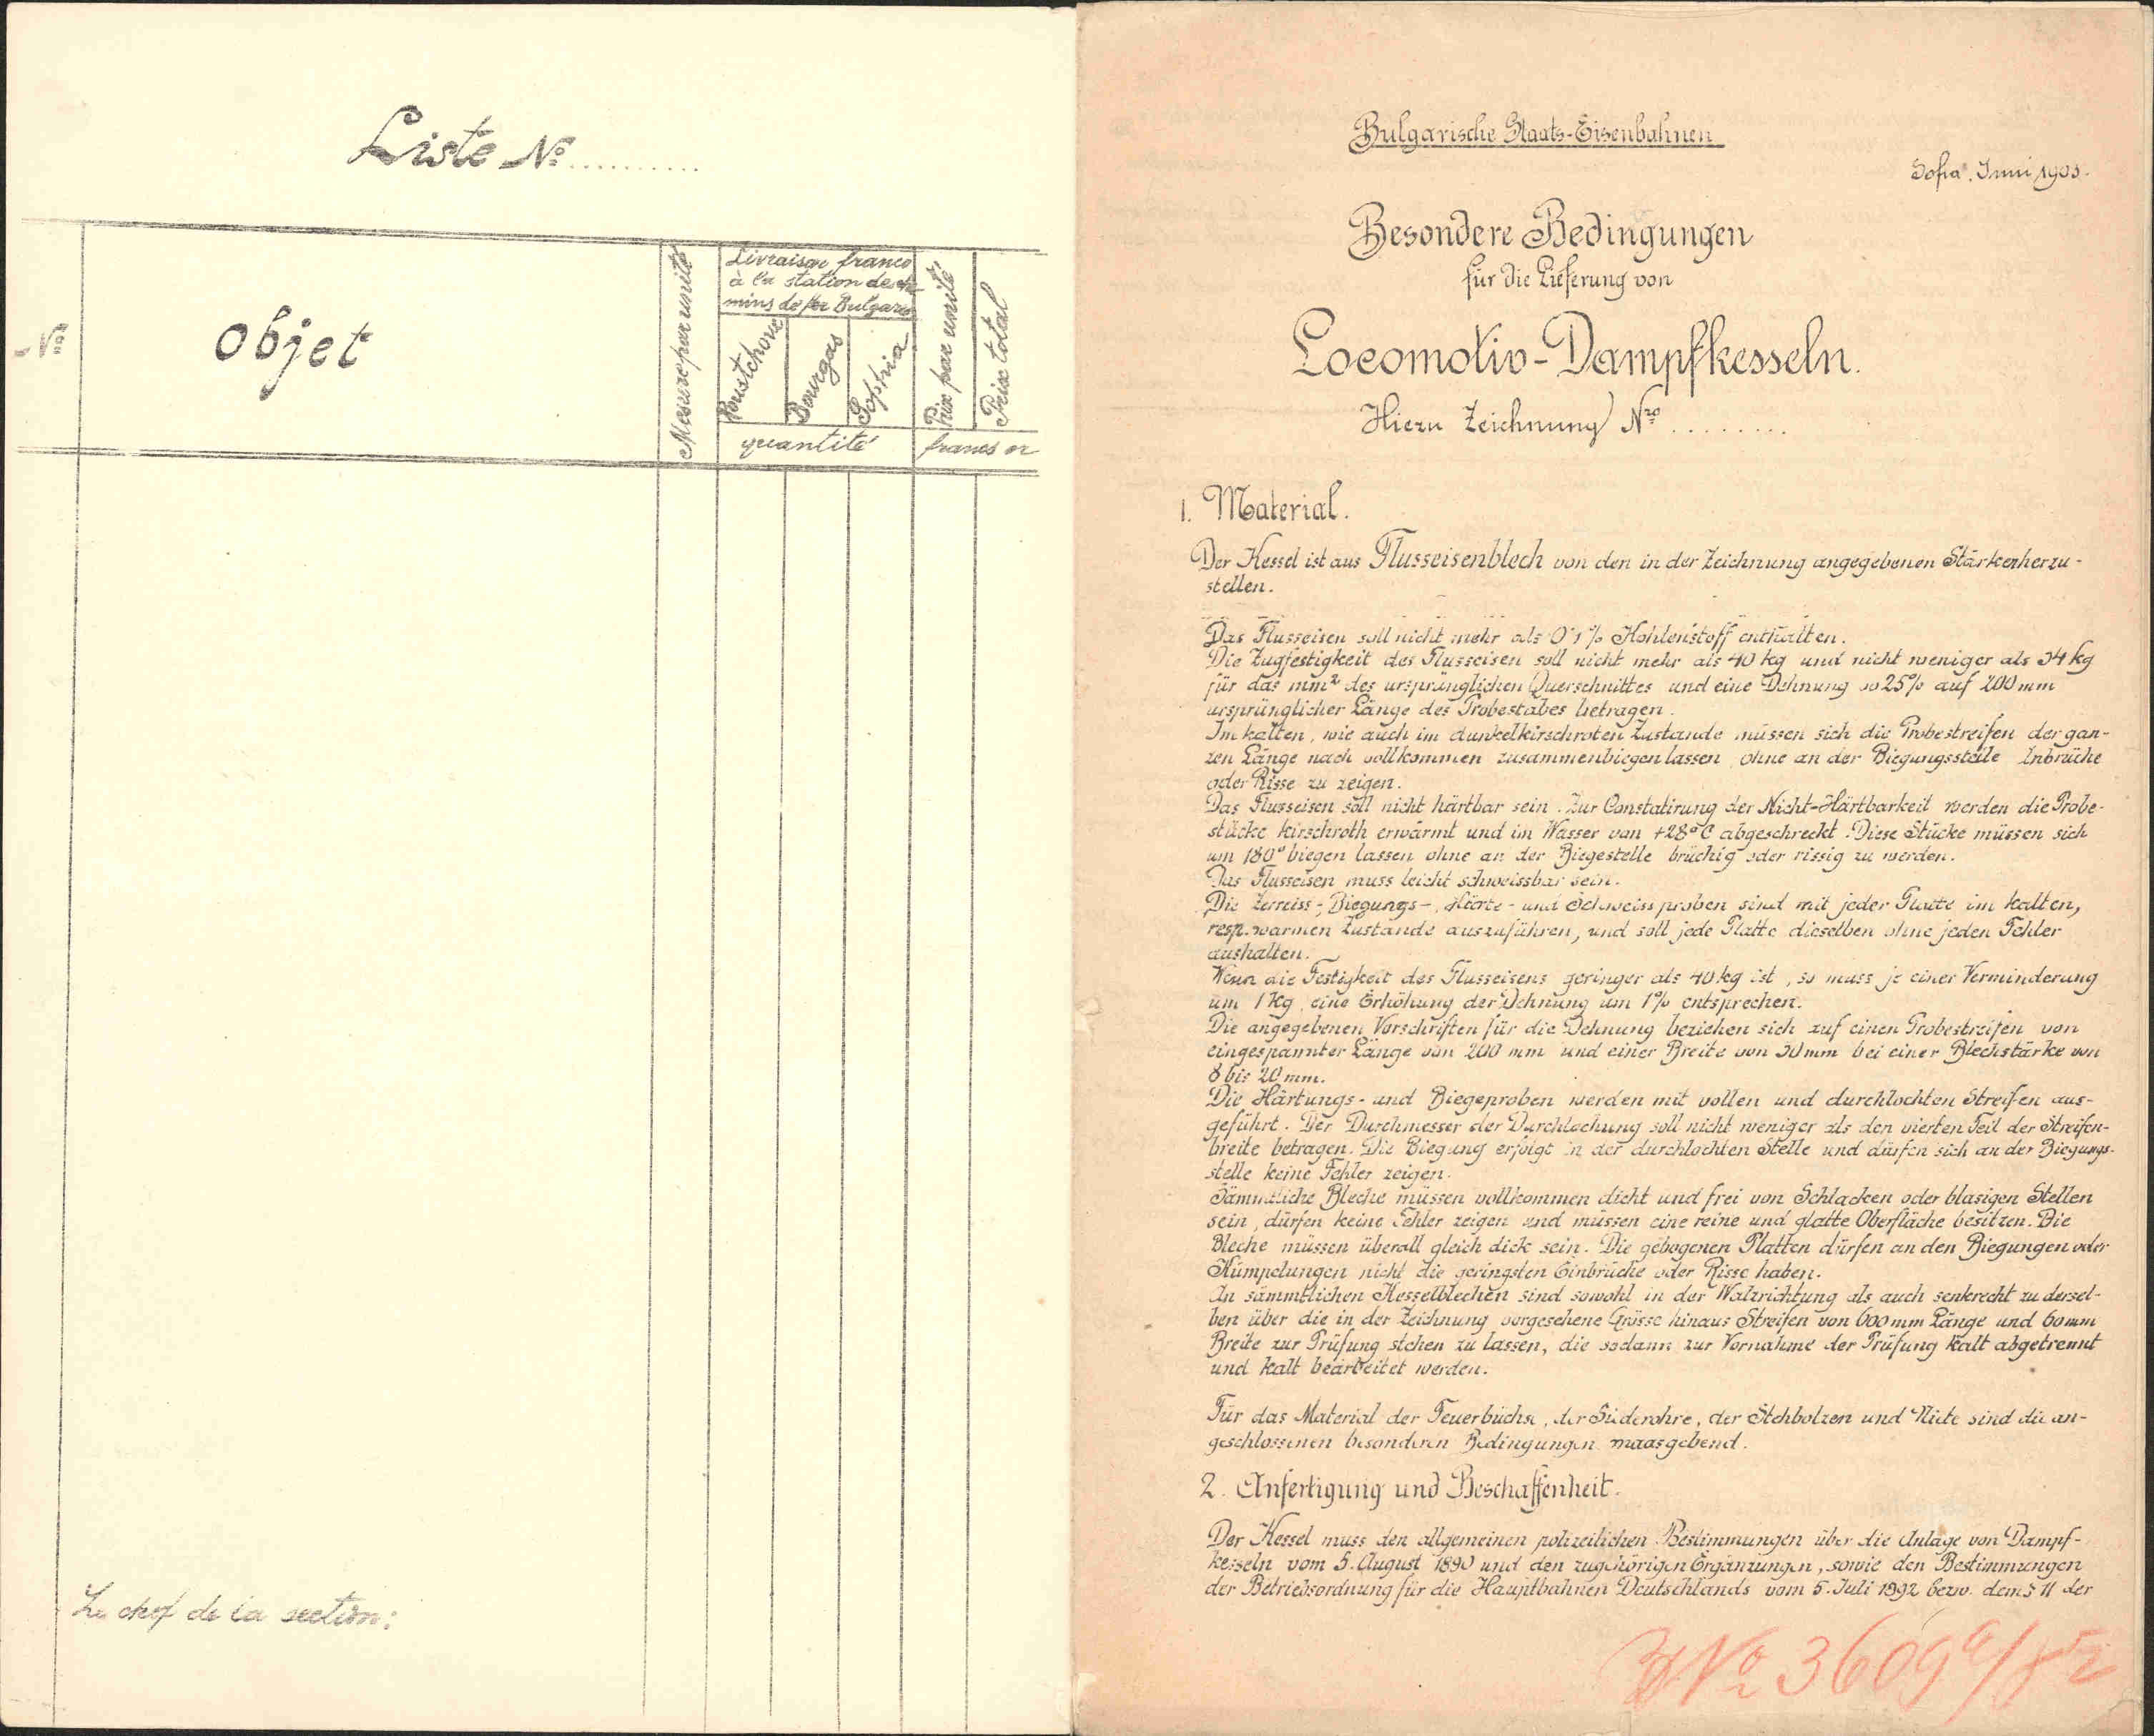 Liste No ..........
No
Objet
Mesure par unité
Livraison franco
à la station de che
mins de fer Bulgares
Roustchouk
Bourgas
Sophia
quantité
Prix par unité
Prix total
francs or
Le chef de la section:
Bulgarische Staats-Eisenbahnen
Sofia, Juni
Besondere Bedingungen
für die Lieferung von
Locomotiv-Dampfkesseln.
Hiezu Zeichnung Nro ........
1. Material.
Der Kessel ist aus Flusseisenblech von den in der Zeichnung angegebenen Stärken herzu-
stellen.
Das Flusseisen soll nicht mehr als 0·1% Kohlenstoff enthalten.
Die Zugfestigkeit des Flusseisen soll nicht mehr als 40 kg und nicht weniger als 34 kg
für das mm² des ursprünglichen Querschnittes und eine Dehnung 25% auf 200 mm
ursprünglicher Länge des Probestabes betragen.
Im kalten, wie auch im dunkelkirschroten Zustande müssen sich die Probestreifen der gan-
zen Länge nach vollkommen zusammenbiegen lassen, ohne an der Biegungsstelle Anbrüche
oder Risse zu zeigen.
Das Flusseisen soll nicht härtbar sein. Zur Constatirung der Nicht-Härtbarkeit werden die Probe-
stücke kirschroth erwärmt und im Wasser von +28°C abgeschreckt. Diese Stücke müssen sich
um 180° biegen lassen ohne an der Biegestelle brüchig oder rissig zu werden.
Das Flusseisen muss leicht schweissbar sein.
Die Zerreiss-, Biegungs-, Härte- und Schweissproben sind mit jeder Platte im kalten,
resp. warmen Zustande auszuführen, und soll jede Platte dieselben ohne jeden Fehler
aushalten.
Wenn die Festigkeit des Flusseisens geringer als 40 kg ist, so muss je einer Verminderung
um 1 kg eine Erhöhung der Dehnung um 1% entsprechen.
Die angegebenen Vorschriften für die Dehnung beziehen sich auf einen Probestreifen von
eingespannter Länge von 200 mm und einer Breite von 30 mm bei einer Blechstärke von
8 bis 20 mm.
Die Härtungs- und Biegeproben werden mit vollen und durchlochten Streifen aus-
geführt. Der Durchmesser der Durchlochung soll nicht weniger als den vierten Teil der Streifen-
breite betragen. Die Biegung erfolgt in der durchlochten Stelle und dürfen sich an der Biegungs-
stelle keine Fehler zeigen.
Sämmtliche Bleche müssen vollkommen dicht und frei von Schlacken oder blasigen Stellen
sein, dürfen keine Fehler zeigen und müssen eine reine und glatte Oberfläche besitzen. Die
Bleche müssen überall gleich dick sein. Die gebogenen Platten dürfen an den Biegungen oder
Kümpelungen nicht die geringsten Einbrüche oder Risse haben.
An sämmtlichen Kesselblechen sind sowohl in der Walzrichtung als auch senkrecht zu dersel-
ben über die in der Zeichnung vorgesehene Grösse hinaus Streifen von 600 mm Länge und 60 mm
Breite zur Prüfung stehen zu lassen, die sodann zur Vornahme der Prüfung kalt abgetrennt
und kalt bearbeitet werden.
Für das Material der Feuerbüchse, der Siederohre, der Stehbolzen und Niete sind die an-
geschlossenen besonderen Bedingungen maasgebend.
2. Anfertigung und Beschaffenheit.
Der Kessel muss den allgemeinen polizeilichen Bestimmungen über die Anlage von Dampf-
kesseln vom 5. August 1890 und den zugehörigen Ergänzungen, sowie den Bestimmungen
der Betriebsordnung für die Hauptbahnen Deutschlands vom 5. Juli 1892 bezw. dem § 11 der
No 3609a/82